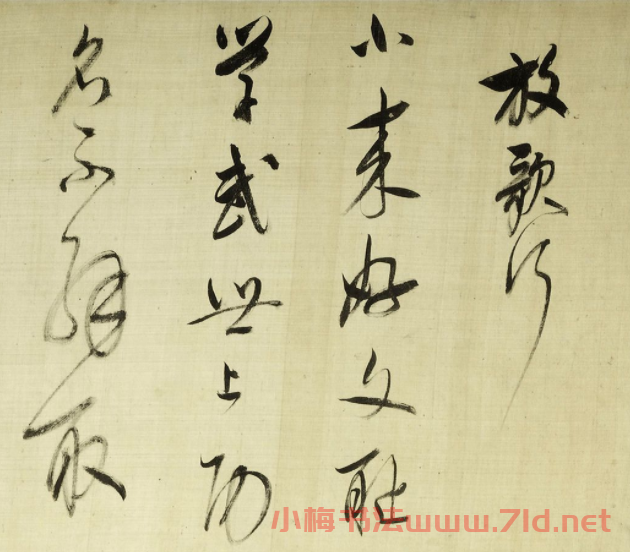 放歌行
小来好文耻
学武世上功
名不解取
小梅书法www.7ld.net